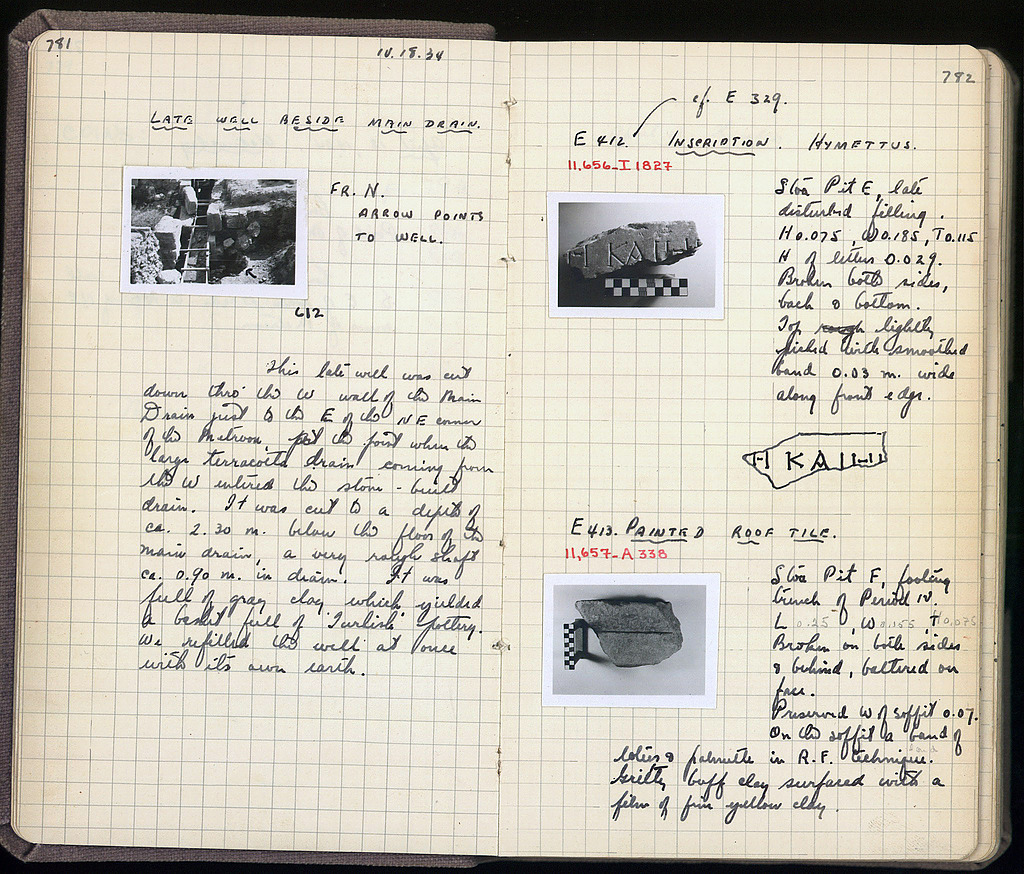 781
IV.18.34
LATE WELL BESIDE MAIN DRAIN.
FR. N.
ARROW POINTS
TO WELL.
612
This late well was cut
down thro' the W wall of the Main
Drain just to the E of the NE corner
of the Metroon, at the point where the
large terracotta drain coming from
the W entered the stone-built
drain. It was cut to a depth of
ca. 2.30 m. below the floor of the
main drain, a very rough shaft
ca. 0.90 m. in diam. It was
full of gray clay which yielded
a basket full of Turkish pottery.
We refilled the well at once
with its own earth.
782
cf. E 329.
E 412. INSCRIPTION. HYMETTUS.
11,656-I 1827
Stoa Pit E, late
disturbed filling.
H 0.075, W 0.185, T 0.115
H of letters 0.029.
Broken both sides,
back & bottom.
Top rough lightly
picked with smoothed
band 0.03 m. wide
along front edge.
Η ΚΑΙ
E 413. PAINTED ROOF TILE.
11,657-A 338
Stoa Pit F, footing
trench of Period IV.
L 0.25, W 0.155, T 0.075
Broken on both sides
& behind, battered on
face.
Preserved W of soffit 0.07.
On the soffit a band of
lotus & palmette in R.F. technique.
Gritty buff clay surfaced with a
film of fine yellow clay.